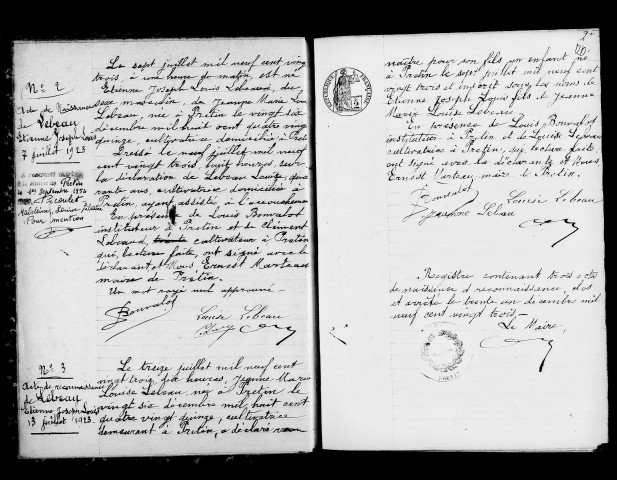 Nº 2
Acte de Naissance
de Lebeau
Etienne Joseph Louis
7 juillet 1923
Pretin
le 1er septembre 1954
Madeleine, Louise
Pour mention
Le sept juillet mil neuf cent vingt
trois, à une heure du matin, est né
Etienne Joseph Louis Lebeau, du
sexe masculin, de Jeanne Marie Louise
Lebeau, née à Pretin le vingt six
décembre mil huit cent quatre vingt
quinze, cultivatrice domiciliée à
Dressé le neuf juillet mil neuf
cent vingt trois, huit heures, sur
la déclaration de Lebeau Louise, quarante
ans, cultivatrice domiciliée à
Pretin, ayant assistée à l'accouchement
En présence de Louis Bonvalot
instituteur à Pretin et de Clément
Lebeaud, cultivateur à Pretin
qui, lecture faite, ont signé avec le
déclarant et Nous Ernest Marteau
maire de Prétin.
Un mot rayé nul approuvé
Bonvalot
Louise Lebeau
Nº 3
Acte de reconnaissance
de Lebeau
Etienne Joseph Louis
13 juillet 1923.
Le treize juillet mil neuf cent
vingt trois, dix heures, Jeanne Marie
Louise Lebeau née à Pretin le
vingt six décembre mil huit cent
quatre vingt quinze, cultivatrice
demeurant à Pretin, a déclaré
naître pour son fils un enfant né
à Pretin le sept juillet mil neuf cent
vingt trois et inscrit sous les noms de
Etienne Joseph Louis fils de Jeanne
Marie Louise Lebeau
En présence de Louis Bonvalot
instituteur à Pretin et de Louise Lebeau
cultivatrice à Pretin, qui, lecture faite
ont signé avec la déclarante et Nous
Ernest Marteau maire de Pretin.
Bonvalot
Louise Lebeau
Lebeau
Registre contenant trois actes
de naissance et reconnaissance, clos
et arrêté le trente un décembre mil
neuf cent vingt trois.
Le Maire,